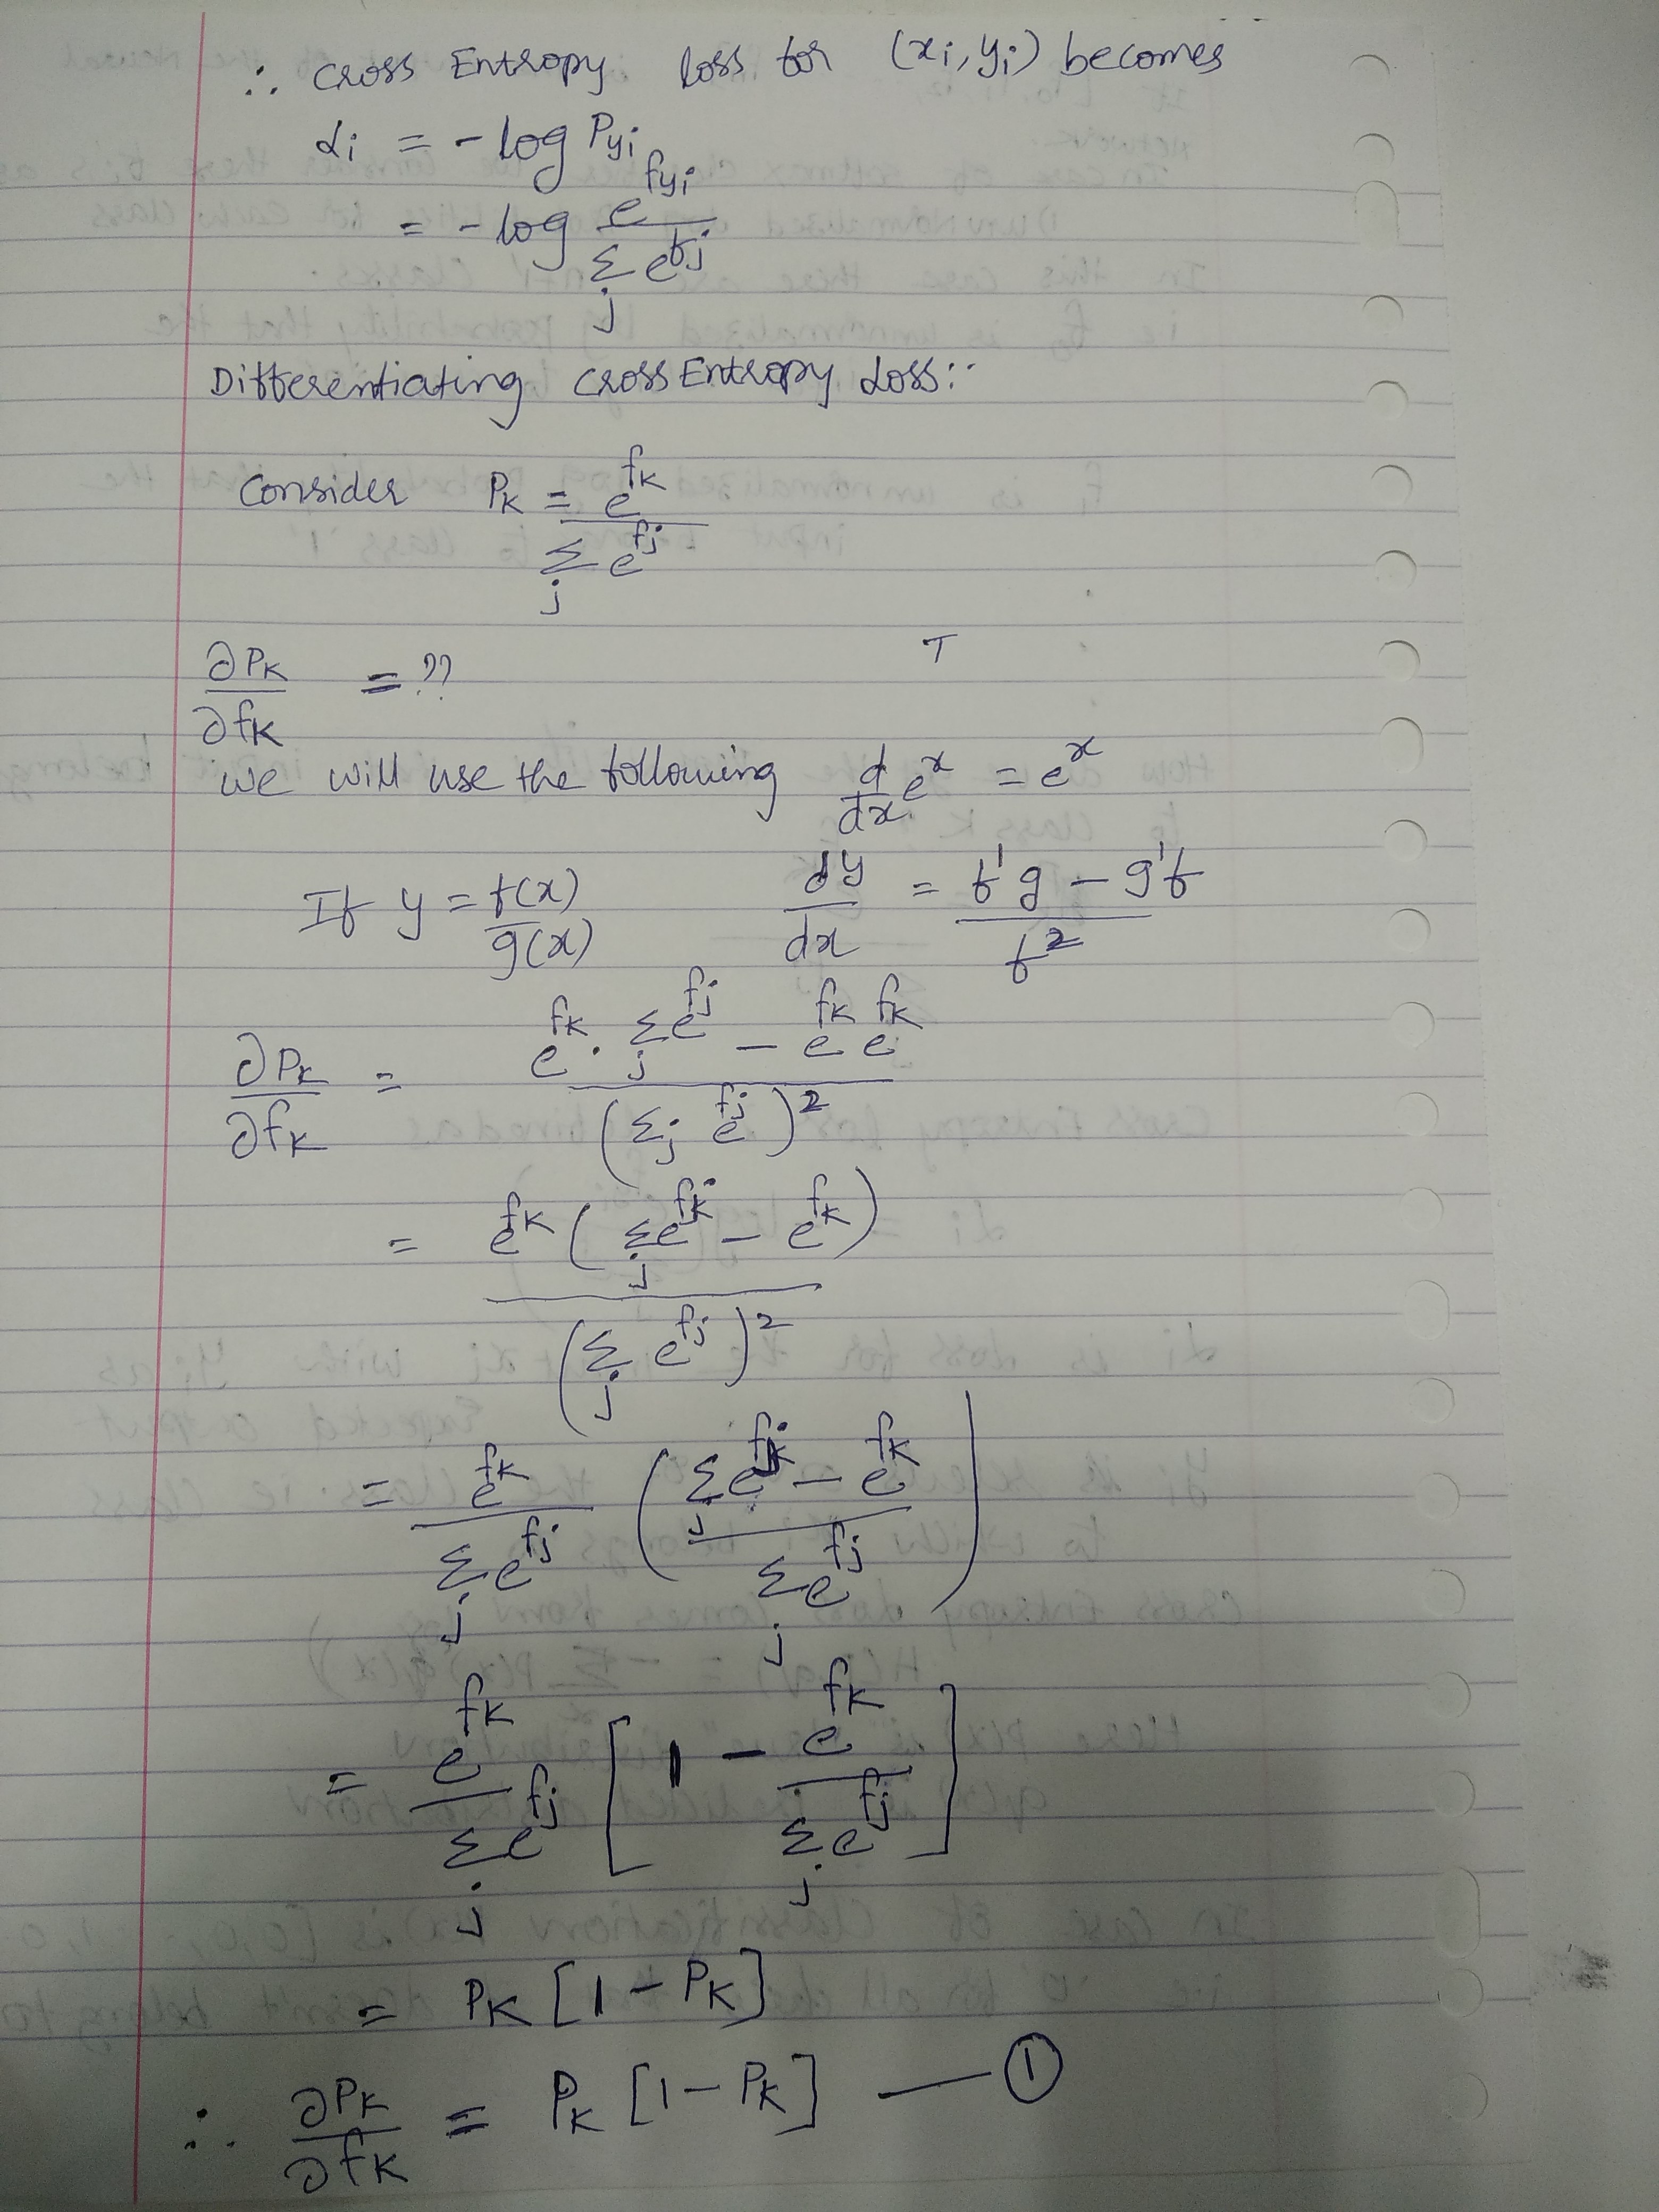 ∴ Cross Entropy loss for (xi, yi) becomes
Li = - log Pyi
= - log e^fyi / Σj e^fj
Differentiating Cross Entropy Loss:-
Consider Pk = e^fk / Σj e^fj
∂Pk / ∂fk = ??
we will use the following d/dx e^x = e^x
If y = f(x) / g(x) dy / dx = f'g - g'f / f²
∂Pk / ∂fk = e^fk . Σj e^fj - e^fk e^fk / (Σj e^fj)²
= e^fk (Σj e^fj - e^fk) / (Σj e^fj)²
= e^fk / Σj e^fj (Σj e^fj - e^fk / Σj e^fj)
= e^fk / Σj e^fj [1 - e^fk / Σj e^fj]
= Pk [1 - Pk]
∴ ∂Pk / ∂fk = Pk [1 - Pk] — ①